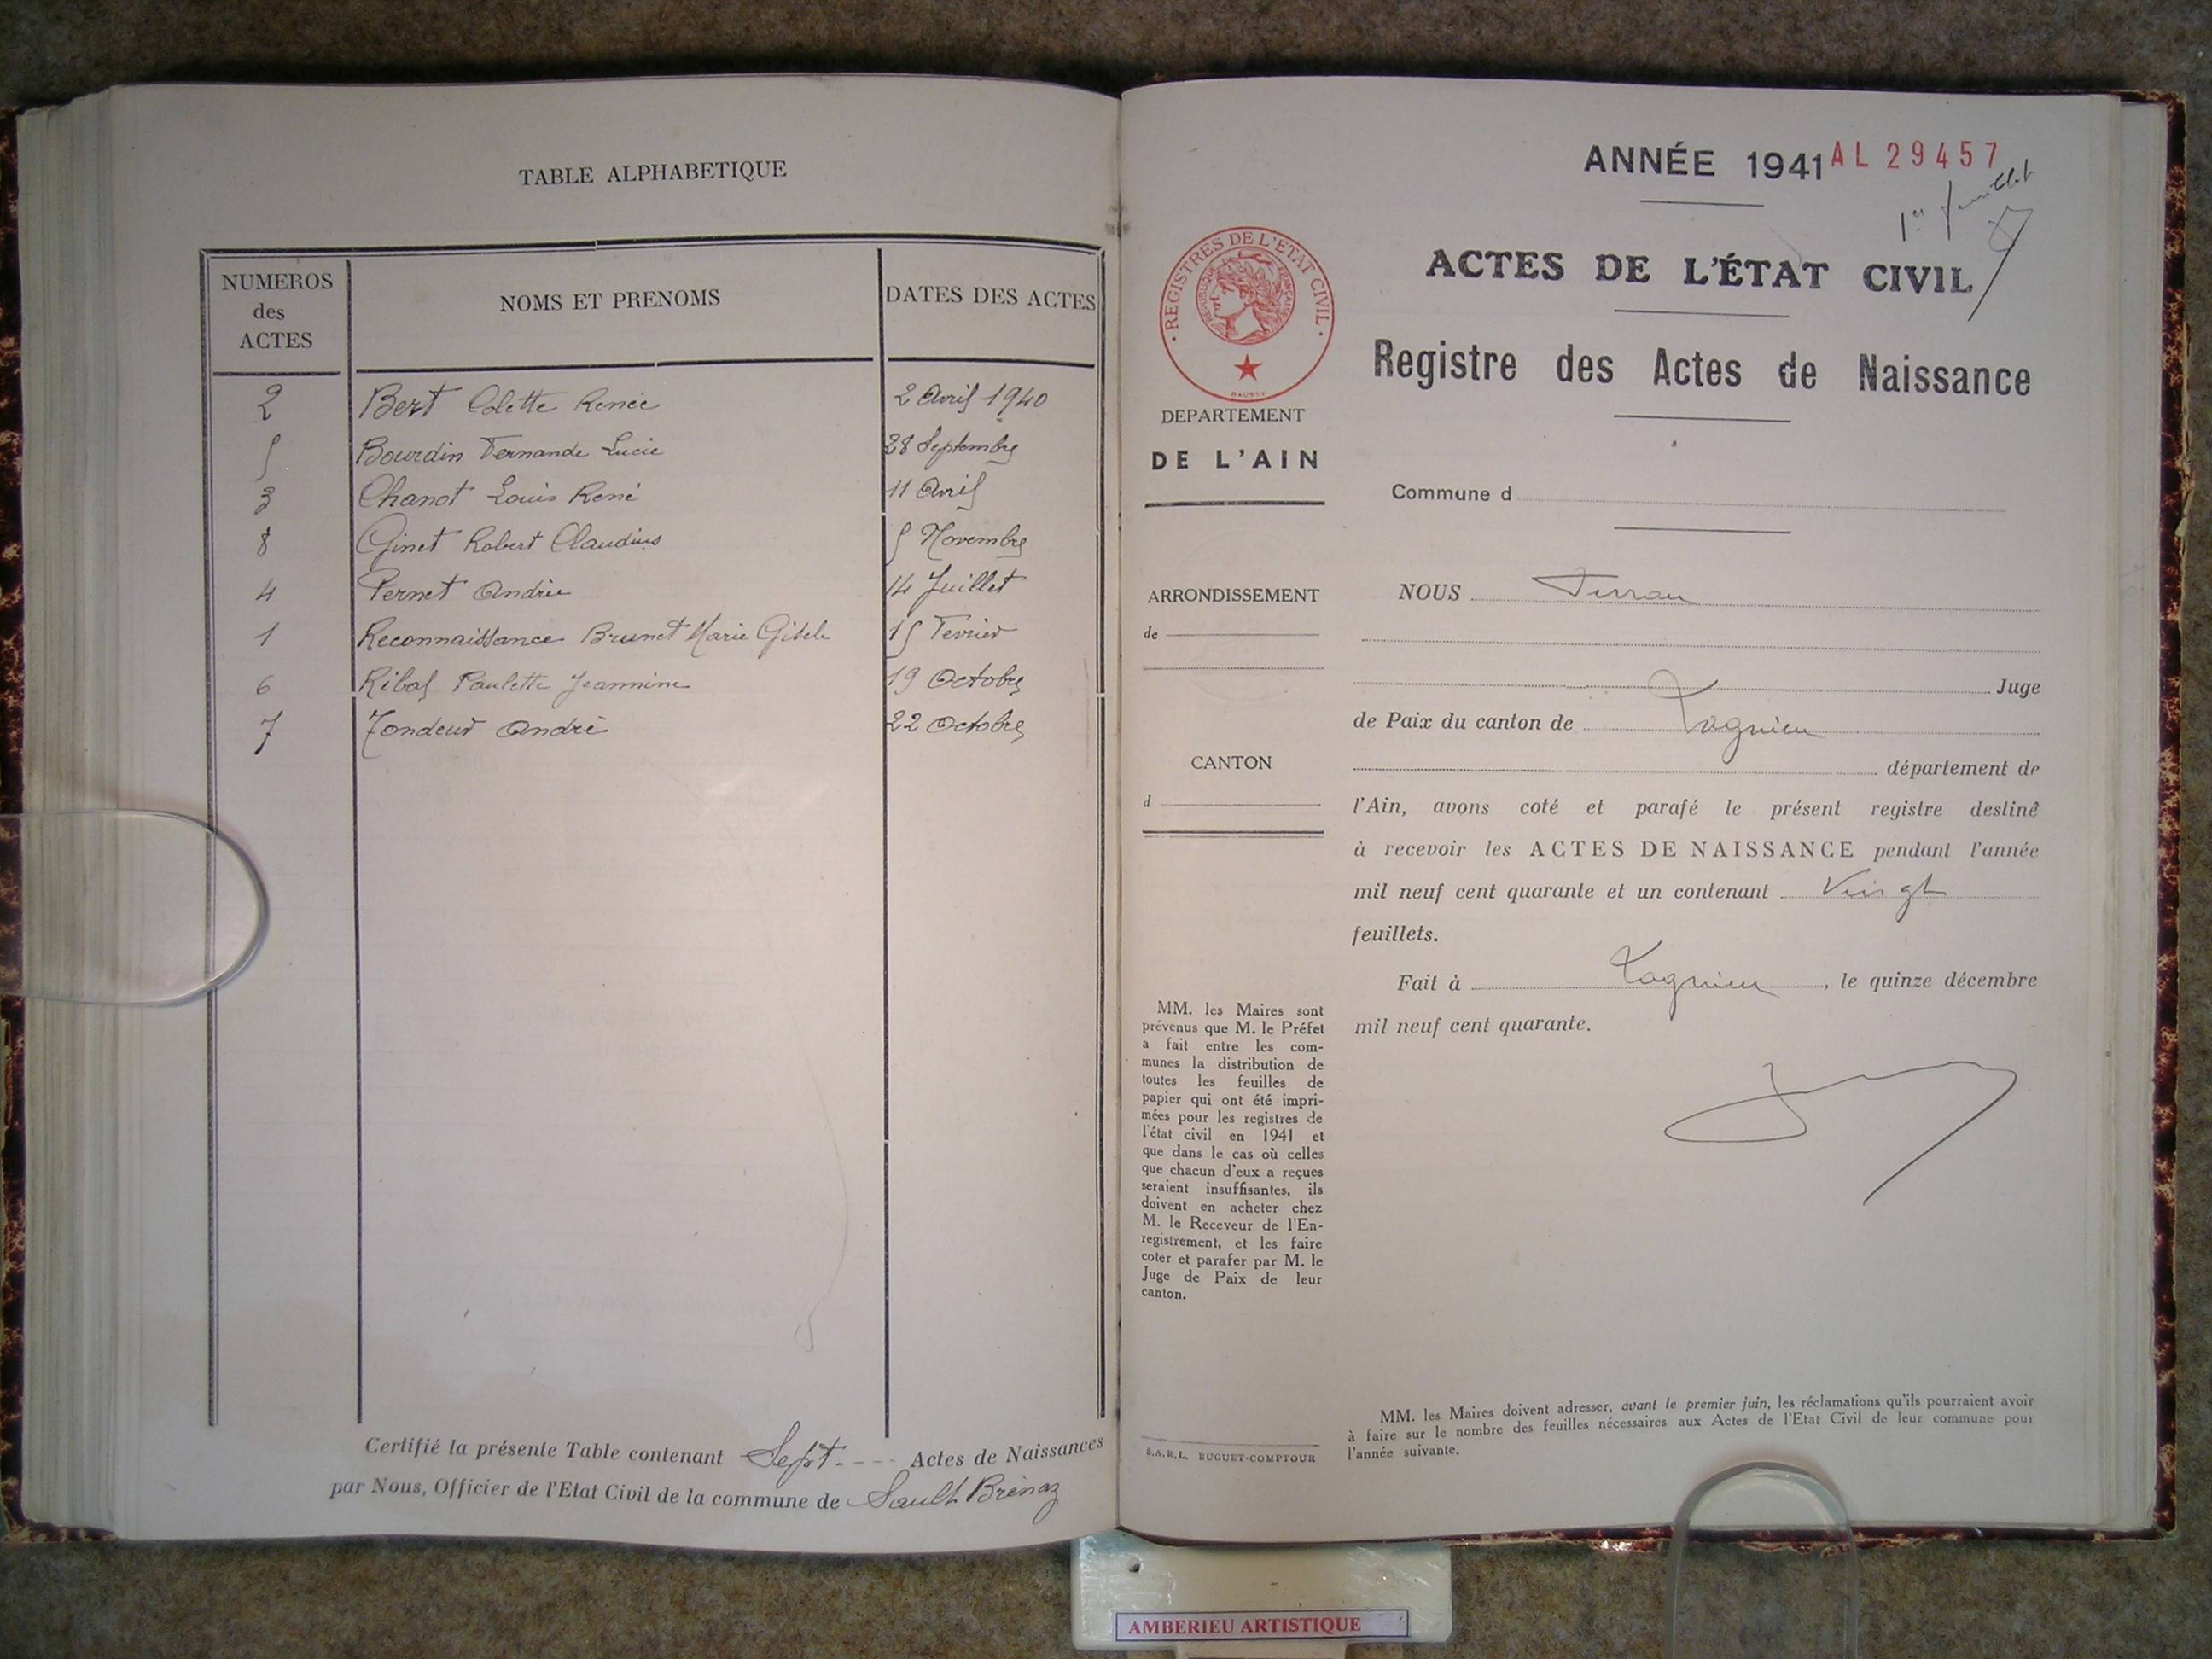 TABLE ALPHABETIQUE
NUMEROS des ACTES NOMS ET PRENOMS DATES DES ACTES
2 Bert Colette Renée 2 Avril 1940
5 Bourdin Fernande Lucie 28 Septembre
3 Chanot Louis René 11 Avril
8 Ginet Robert Claudius 5 Novembre
4 Pernet Andrée 14 Juillet
1 Reconnaissance Brunet Marie Gisèle 15 Fevrier
6 Ribal Paulette Jeannine 19 Octobre
7 Tondeur André 22 Octobre
Certifié la présente Table contenant Sept - - - - Actes de Naissances
par Nous, Officier de l'Etat Civil de la commune de Sault Brénaz
ANNÉE 1941 AL 29457
1er feuillet
ACTES DE L'ÉTAT CIVIL
Registre des Actes de Naissance
· REGISTRES DE L'ETAT CIVIL ·
REPUBLIQUE FRANÇAISE
DEPARTEMENT
DE L'AIN
Commune d
ARRONDISSEMENT
de
CANTON
d
NOUS
Juge
de Paix du canton de Lagnieu
département de
l'Ain, avons coté et parafé le présent registre destiné
à recevoir les ACTES DE NAISSANCE pendant l'année
mil neuf cent quarante et un contenant Vingt
feuillets.
Fait à Lagnieu, le quinze décembre
mil neuf cent quarante.
MM. les Maires sont
prévenus que M. le Préfet
a fait entre les com-
munes la distribution de
toutes les feuilles de
papier qui ont été impri-
mées pour les registres de
l'état civil en 1941 et
que dans le cas où celles
que chacun d'eux a reçues
seraient insuffisantes, ils
doivent en acheter chez
M. le Receveur de l'En-
registrement, et les faire
coter et parafer par M. le
Juge de Paix de leur
canton.
S.A.R.L. BUGUET-COMPTOUR
MM. les Maires doivent adresser, avant le premier juin, les réclamations qu'ils pourraient avoir
à faire sur le nombre des feuilles nécessaires aux Actes de l'Etat Civil de leur commune pour
l'année suivante.
AMBERIEU ARTISTIQUE